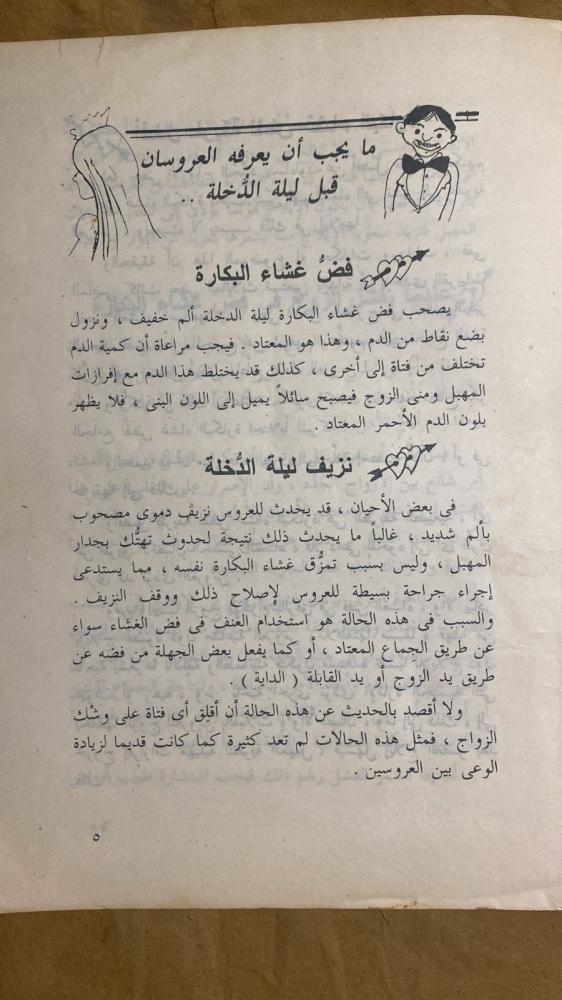 ما يجب أن يعرفه العروسان
قبل ليلة الدُّخلة ..
فضُّ غشاء البكارة
يصحب فض غشاء البكارة ليلة الدخلة ألم خفيف ، ونزول
بضع نقاط من الدم ، وهذا هو المعتاد . فيجب مراعاة أن كمية الدم
تختلف من فتاة إلى أخرى ، كذلك قد يختلط هذا الدم مع إفرازات
المهبل ومنى الزوج فيصبح سائلاً يميل إلى اللون البنى ، فلا يظهر
بلون الدم الأحمر المعتاد .
نزيف ليلة الدُّخلة
فى بعض الأحيان ، قد يحدث للعروس نزيف دموى مصحوب
بألم شديد ، غالباً ما يحدث ذلك نتيجة لحدوث تهتُّك بجدار
المهبل ، وليس بسبب تمزُّق غشاء البكارة نفسه ، مما يستدعى
إجراء جراحة بسيطة للعروس لإصلاح ذلك ووقف النزيف .
والسبب فى هذه الحالة هو استخدام العنف فى فض الغشاء سواء
عن طريق الجِماع المعتاد ، أو كما يفعل بعض الجهلة من فضه عن
طريق يد الزوج أو يد القابلة ( الداية ) .
ولا أقصد بالحديث عن هذه الحالة أن أقلِق أى فتاة على وشْك
الزواج ، فمثل هذه الحالات لم تعد كثيرة كما كانت قديما لزيادة
الوعى بين العروسين .
٥